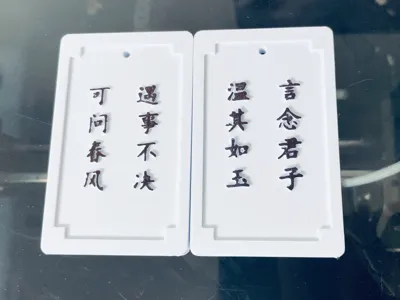 遇事不决
可问春风
言念君子
温其如玉